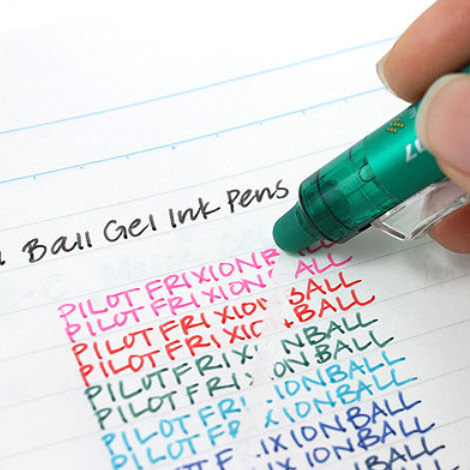 Ball Gel Ink Pens
PILOT FRIXION B
PILOT FRIXION ALL
PILOT FRIXIO BALL
PILOT FRIXIO BALL
PILOT FRIXI NBALL
PILOT FRI ON BALL
PILOT FR IONBALL
PILOT F XIONBALL
IXIONBALL
IXIONBALL
07